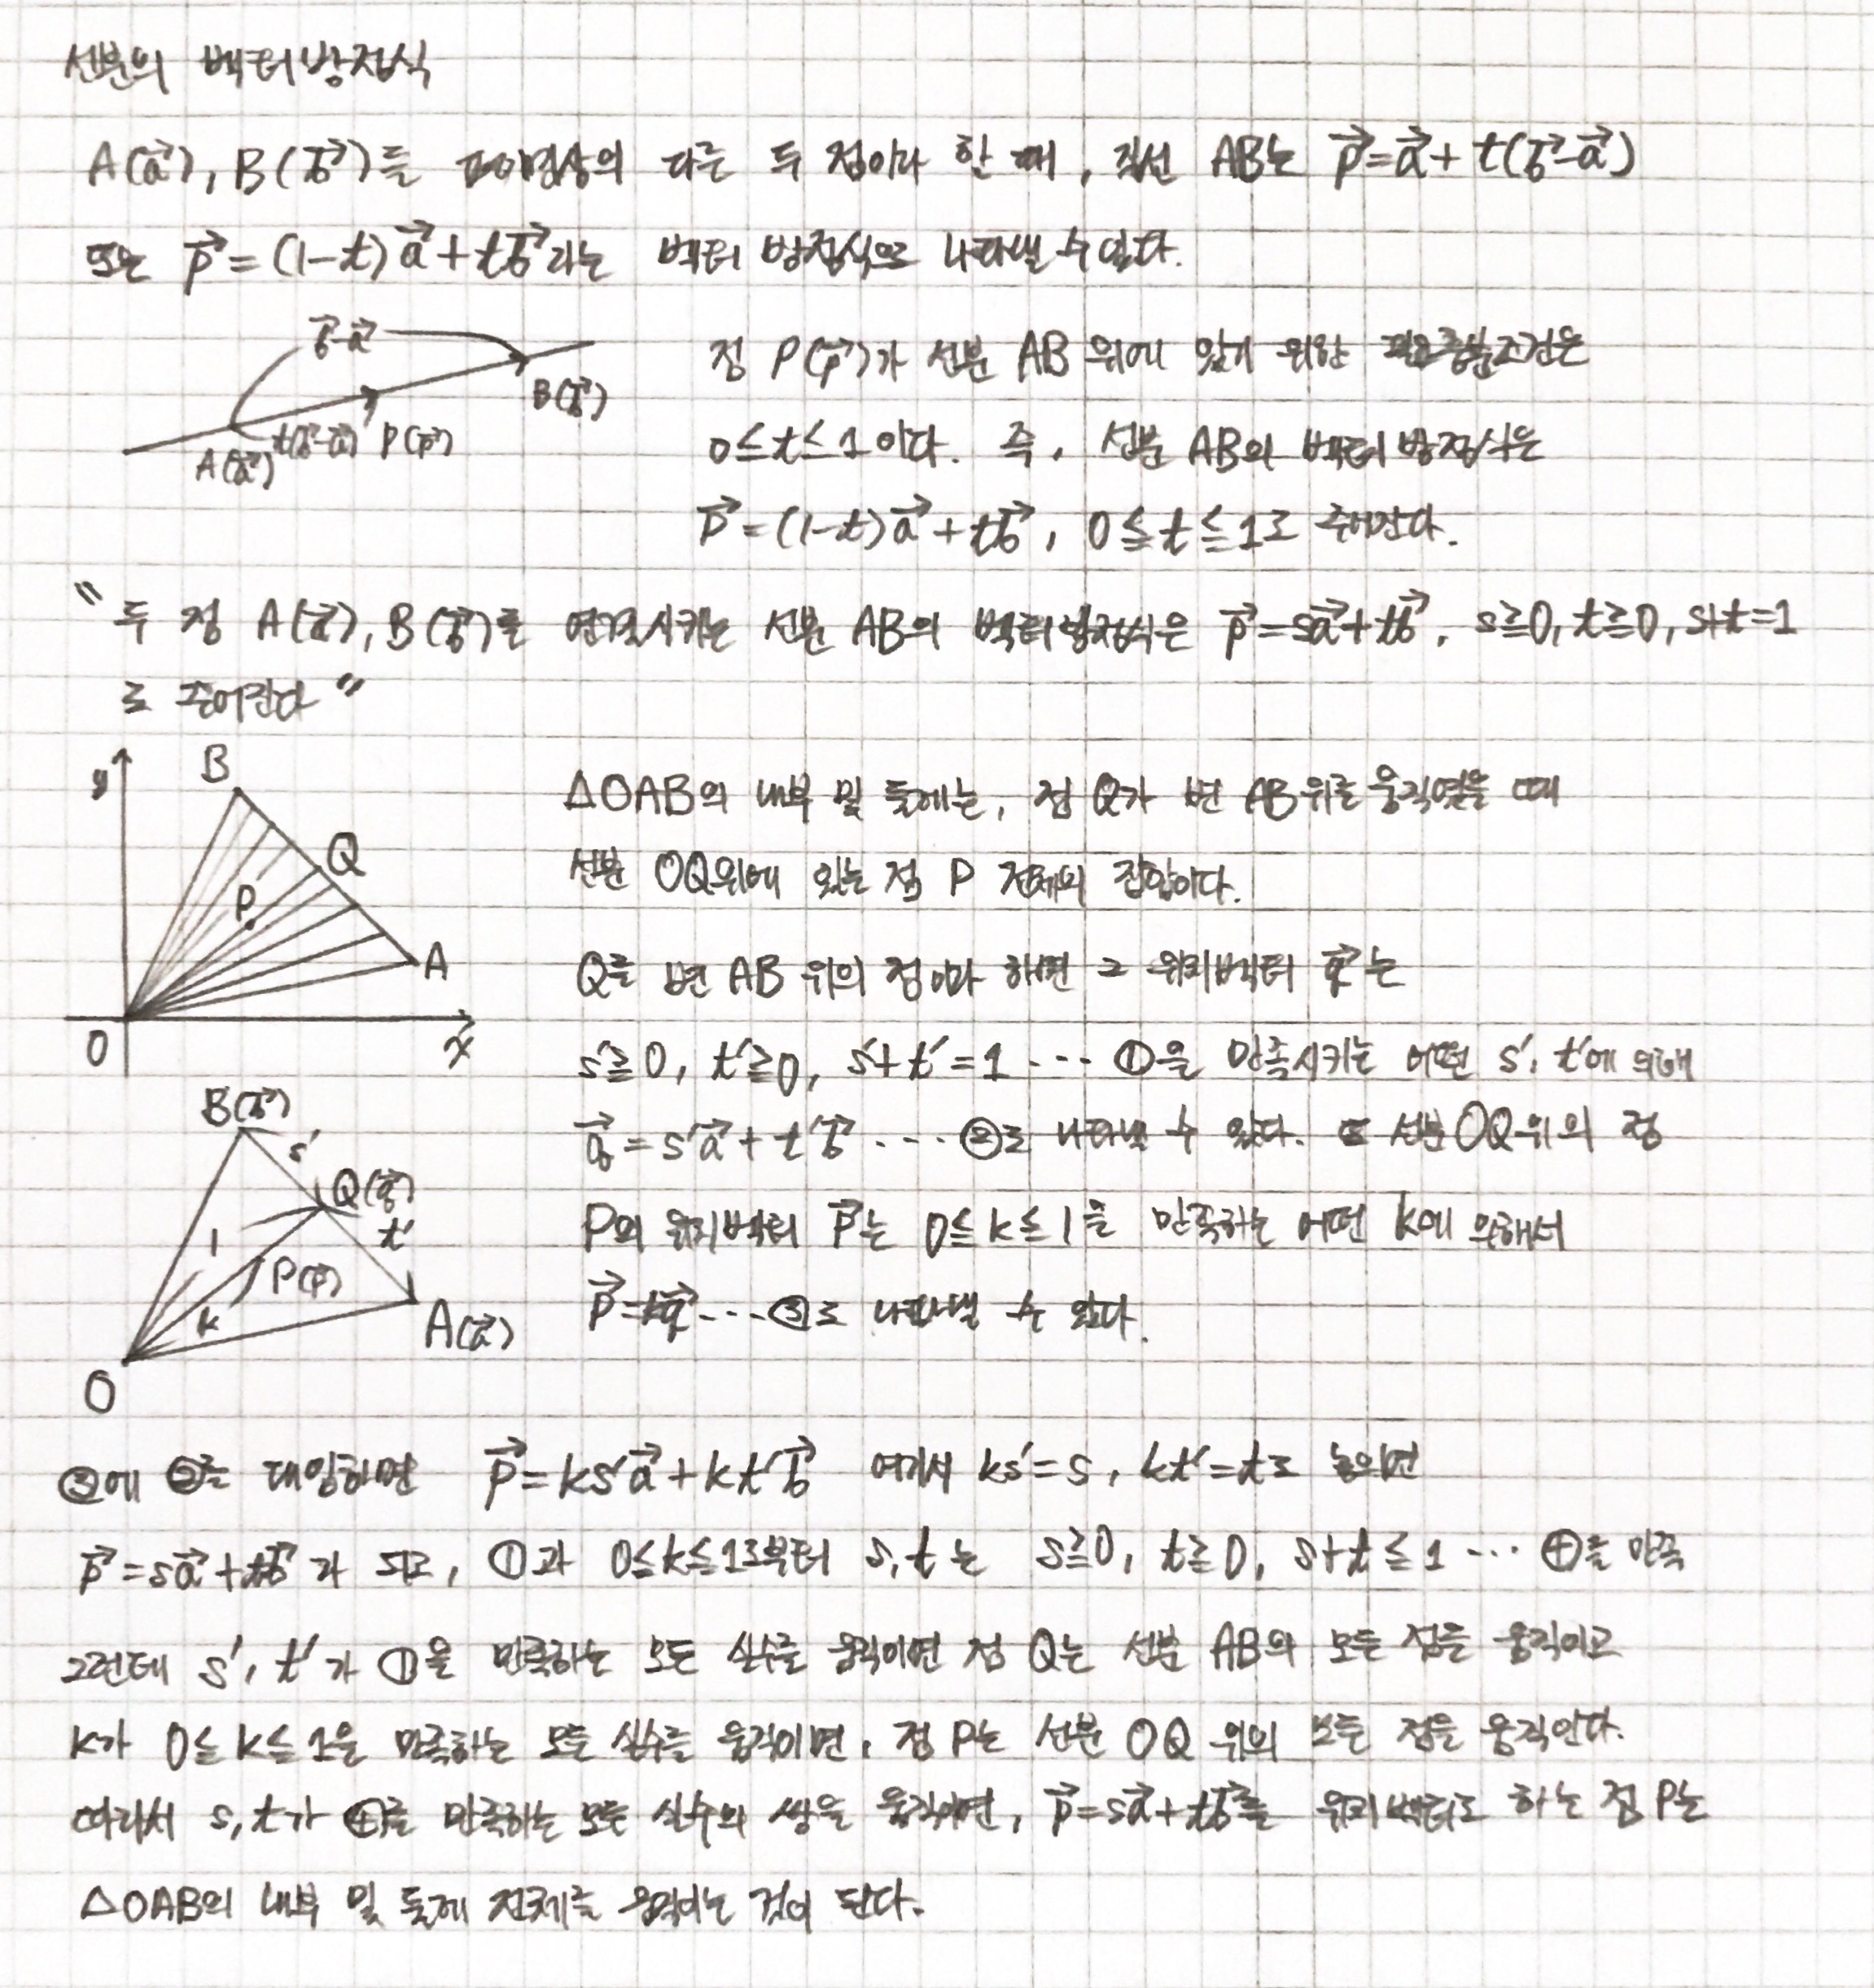 선분의 벡터방정식
A(a⃗), B(b⃗)를 평면상의 다른 두 점이라 할 때, 직선 AB는 p⃗=a⃗+t(b⃗-a⃗)
또는 p⃗=(1-t)a⃗+tb⃗라는 벡터 방정식으로 나타낼 수 있다.
b⃗-a⃗
B(b⃗)
t(b⃗-a⃗) P(p⃗)
A(a⃗)
점 P(p⃗)가 선분 AB 위에 있기 위한 필요충분조건은
0≤t≤1이다. 즉, 선분 AB의 벡터 방정식은
p⃗=(1-t)a⃗+tb⃗, 0≦t≦1로 주어진다.
"두 점 A(a⃗), B(b⃗)를 연결시키는 선분 AB의 벡터방정식은 p⃗=sa⃗+tb⃗, s≧0, t≧0, s+t=1
로 주어진다"
y
B
Q
P
A
O
x
△OAB의 내부 및 둘레는, 점 Q가 변 AB위를 움직였을 때
선분 OQ위에 있는 점 P 전체의 집합이다.
Q를 변 AB 위의 점이라 하면 그 위치벡터 q⃗는
s′≧0, t′≧0, s′+t′=1 ··· ①을 만족시키는 어떤 s′, t′에 의해
q⃗=s′a⃗+t′b⃗ ··· ②로 나타낼 수 있다. 또 선분 OQ위의 점
P의 위치벡터 p⃗는 0≦k≦1을 만족하는 어떤 k에 의해서
p⃗=kq⃗ ··· ③로 나타낼 수 있다.
B(b⃗)
s′
Q(q⃗)
t′
1
P(p⃗)
k
A(a⃗)
O
③에 ②를 대입하면 p⃗=ks′a⃗+kt′b⃗ 여기서 ks′=s, kt′=t로 놓으면
p⃗=sa⃗+tb⃗가 되고, ①과 0≤k≤1로부터 s, t는 s≧0, t≧0, s+t≦1 ··· ④를 만족
그런데 s′, t′가 ①을 만족하는 모든 실수를 움직이면 점 Q는 선분 AB의 모든 점을 움직이고
k가 0≦k≦1을 만족하는 모든 실수를 움직이면, 점 P는 선분 OQ 위의 모든 점을 움직인다.
따라서 s, t가 ④를 만족하는 모든 실수의 쌍을 움직이면, p⃗=sa⃗+tb⃗를 위치벡터로 하는 점 P는
△OAB의 내부 및 둘레 전체를 움직이는 것이 된다.